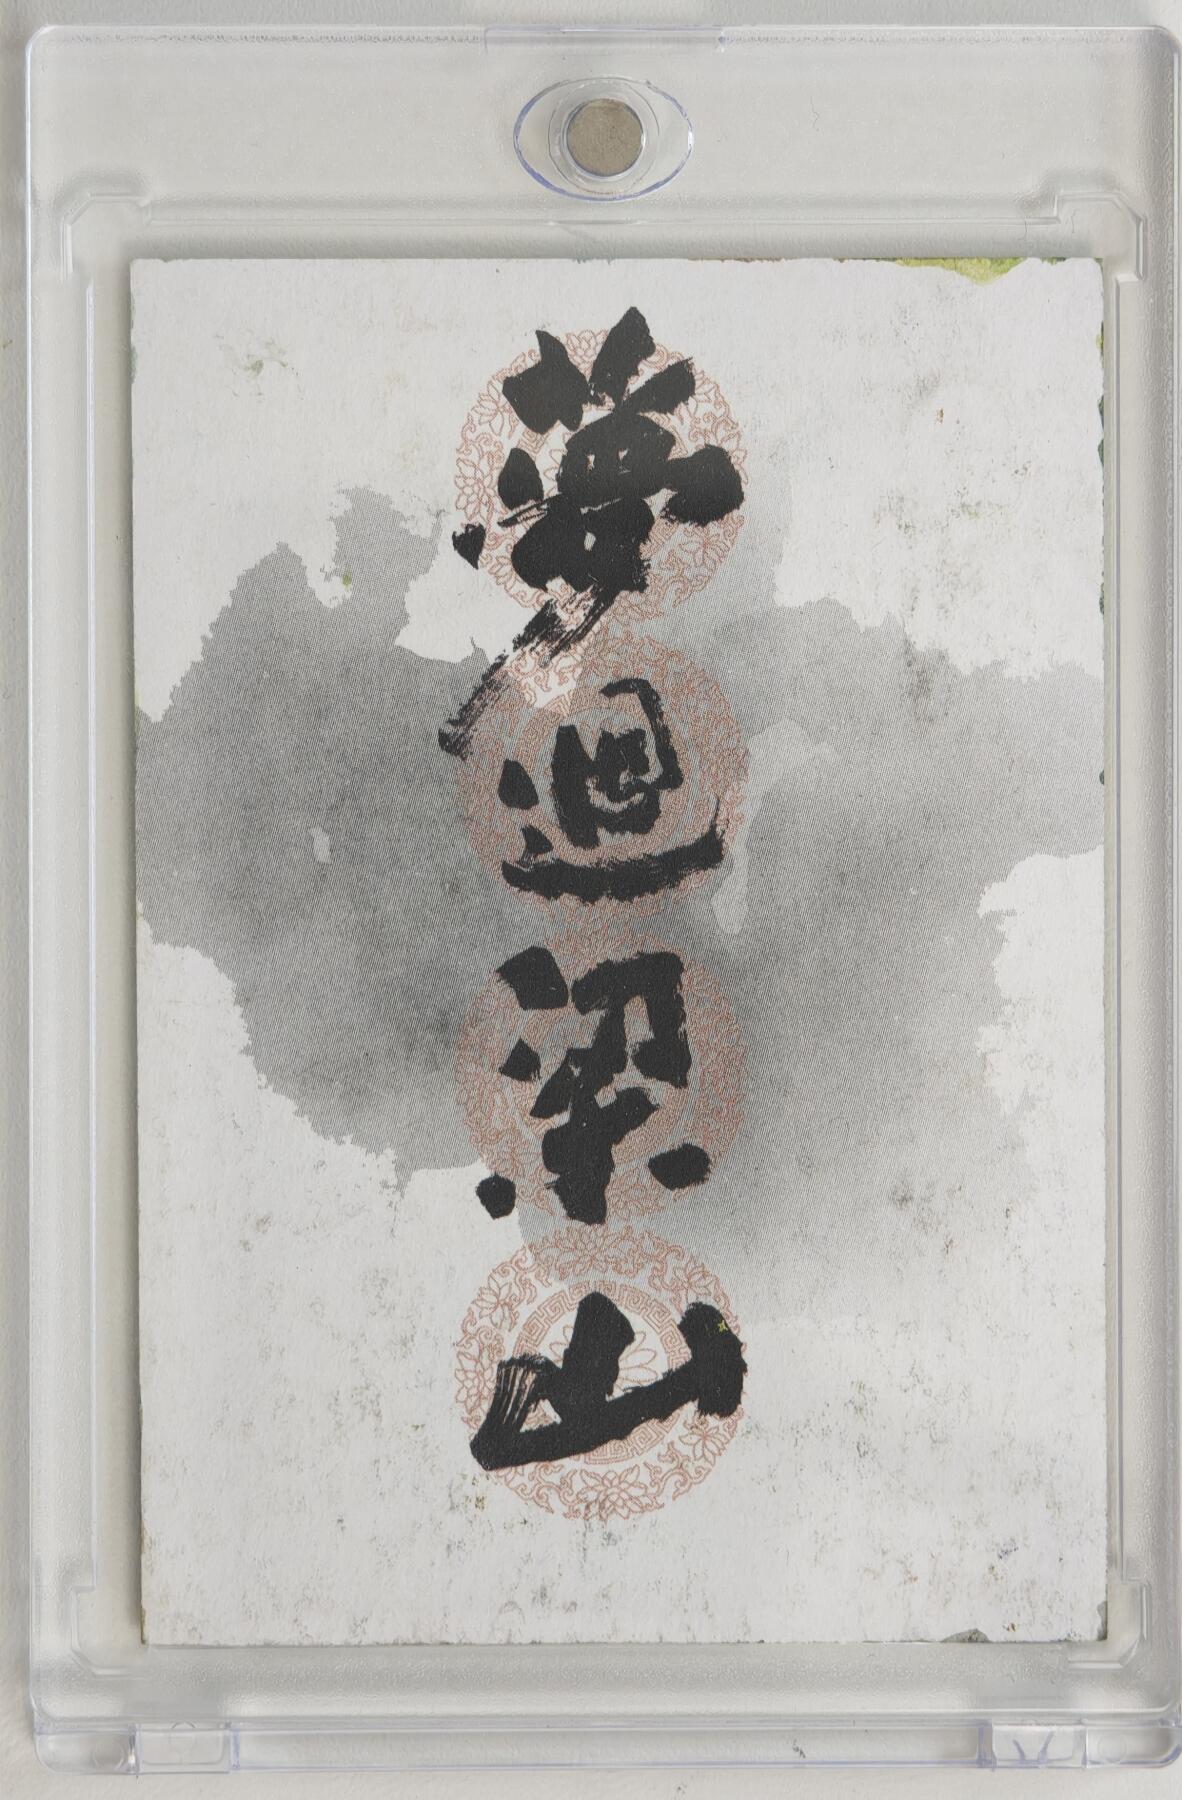 夢迴梁山